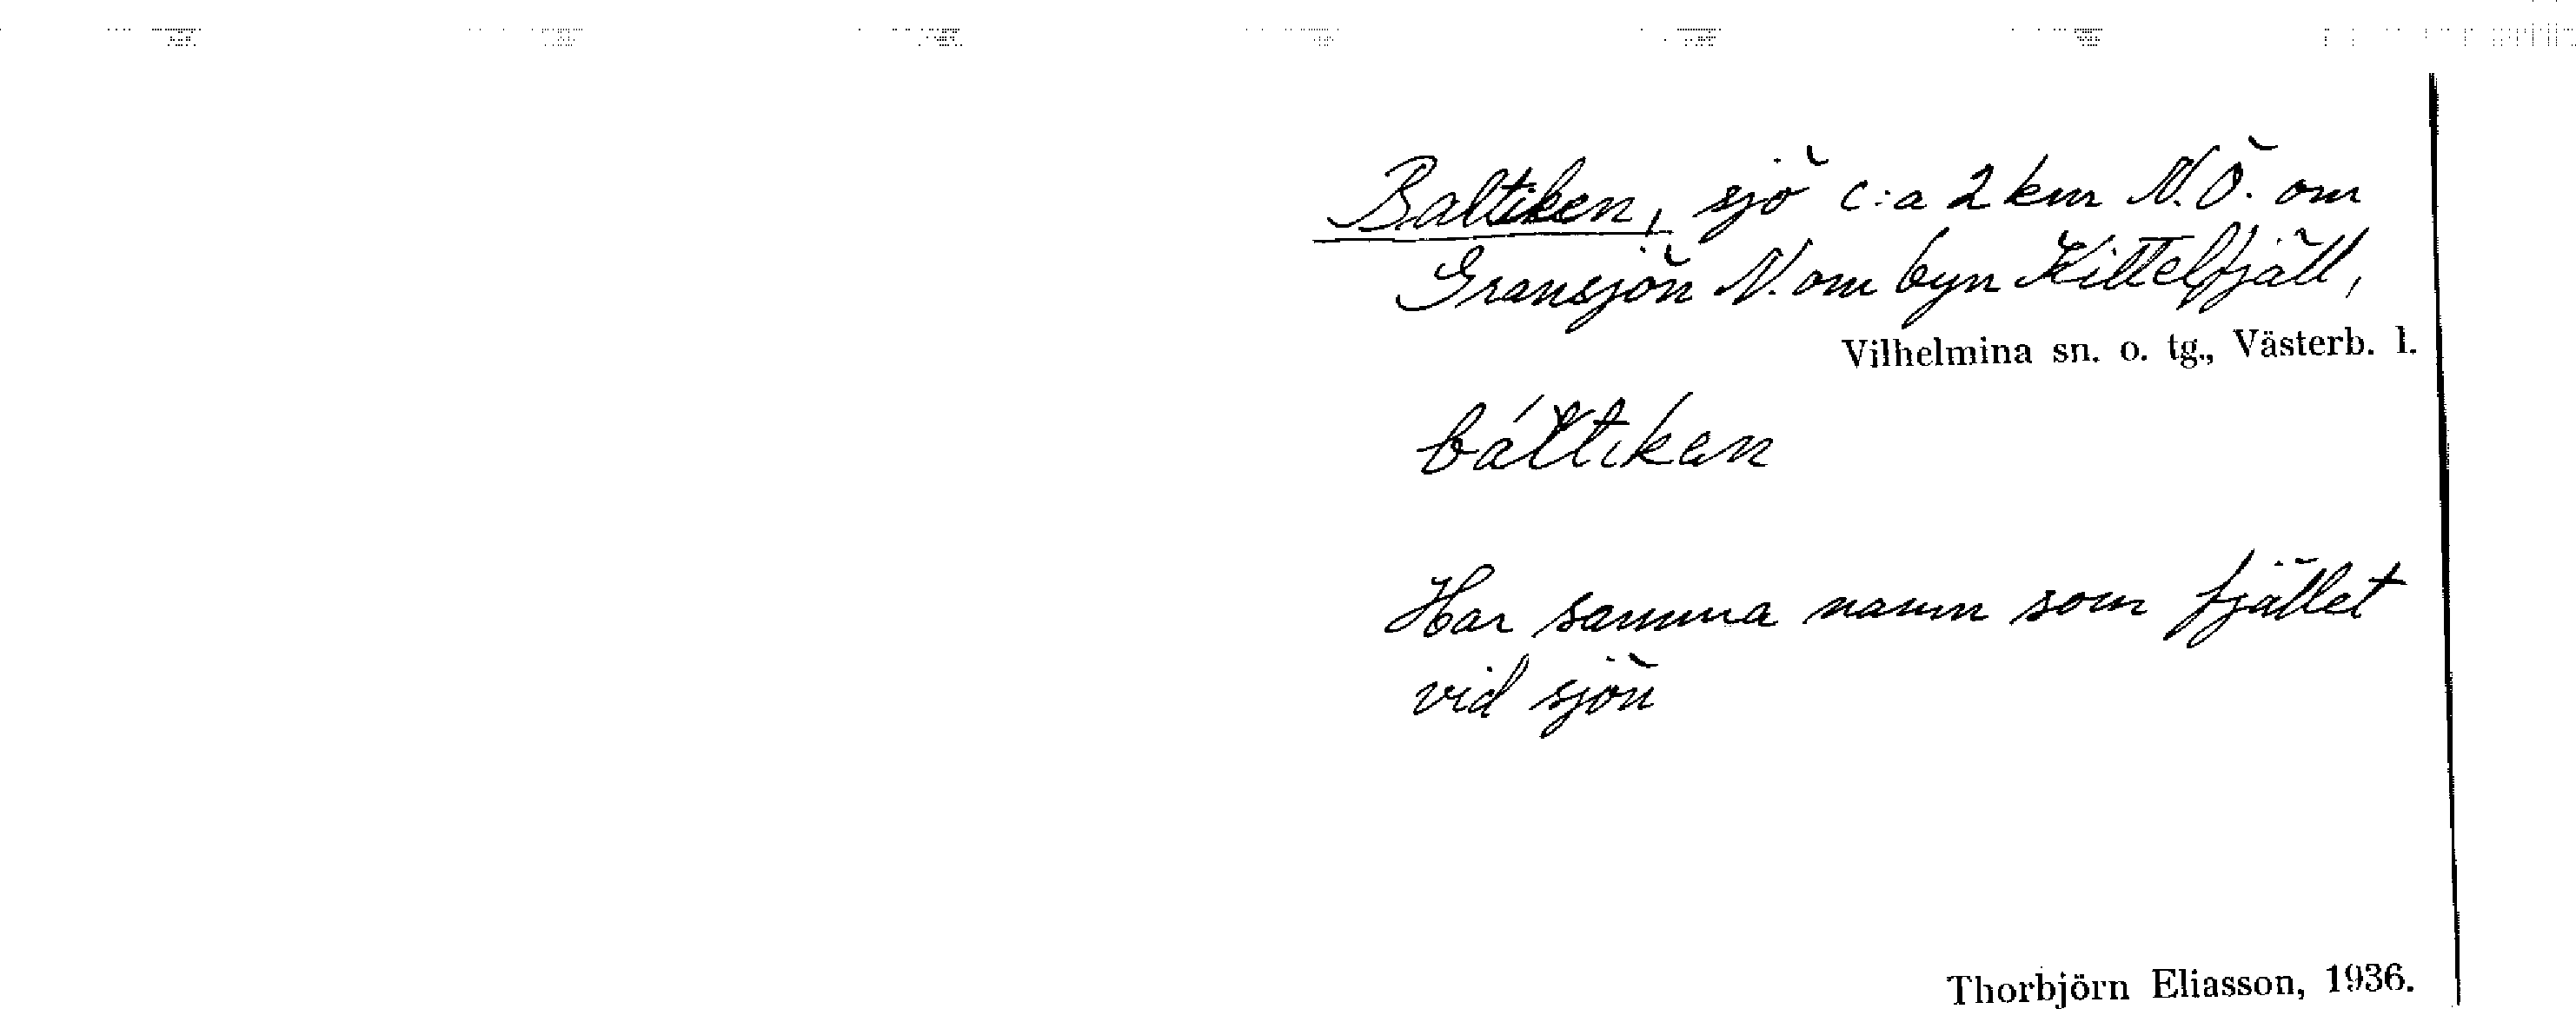 Baltiken, sjö c:a 2 km N.Ö. om
Gransjön N. om byn Kittelfjäll,
Vilhelmina sn. o. tg., Västerb. l.
báltiken
Har samma namn som fjället
vid sjön
Thorbjörn Eliasson, 1936.